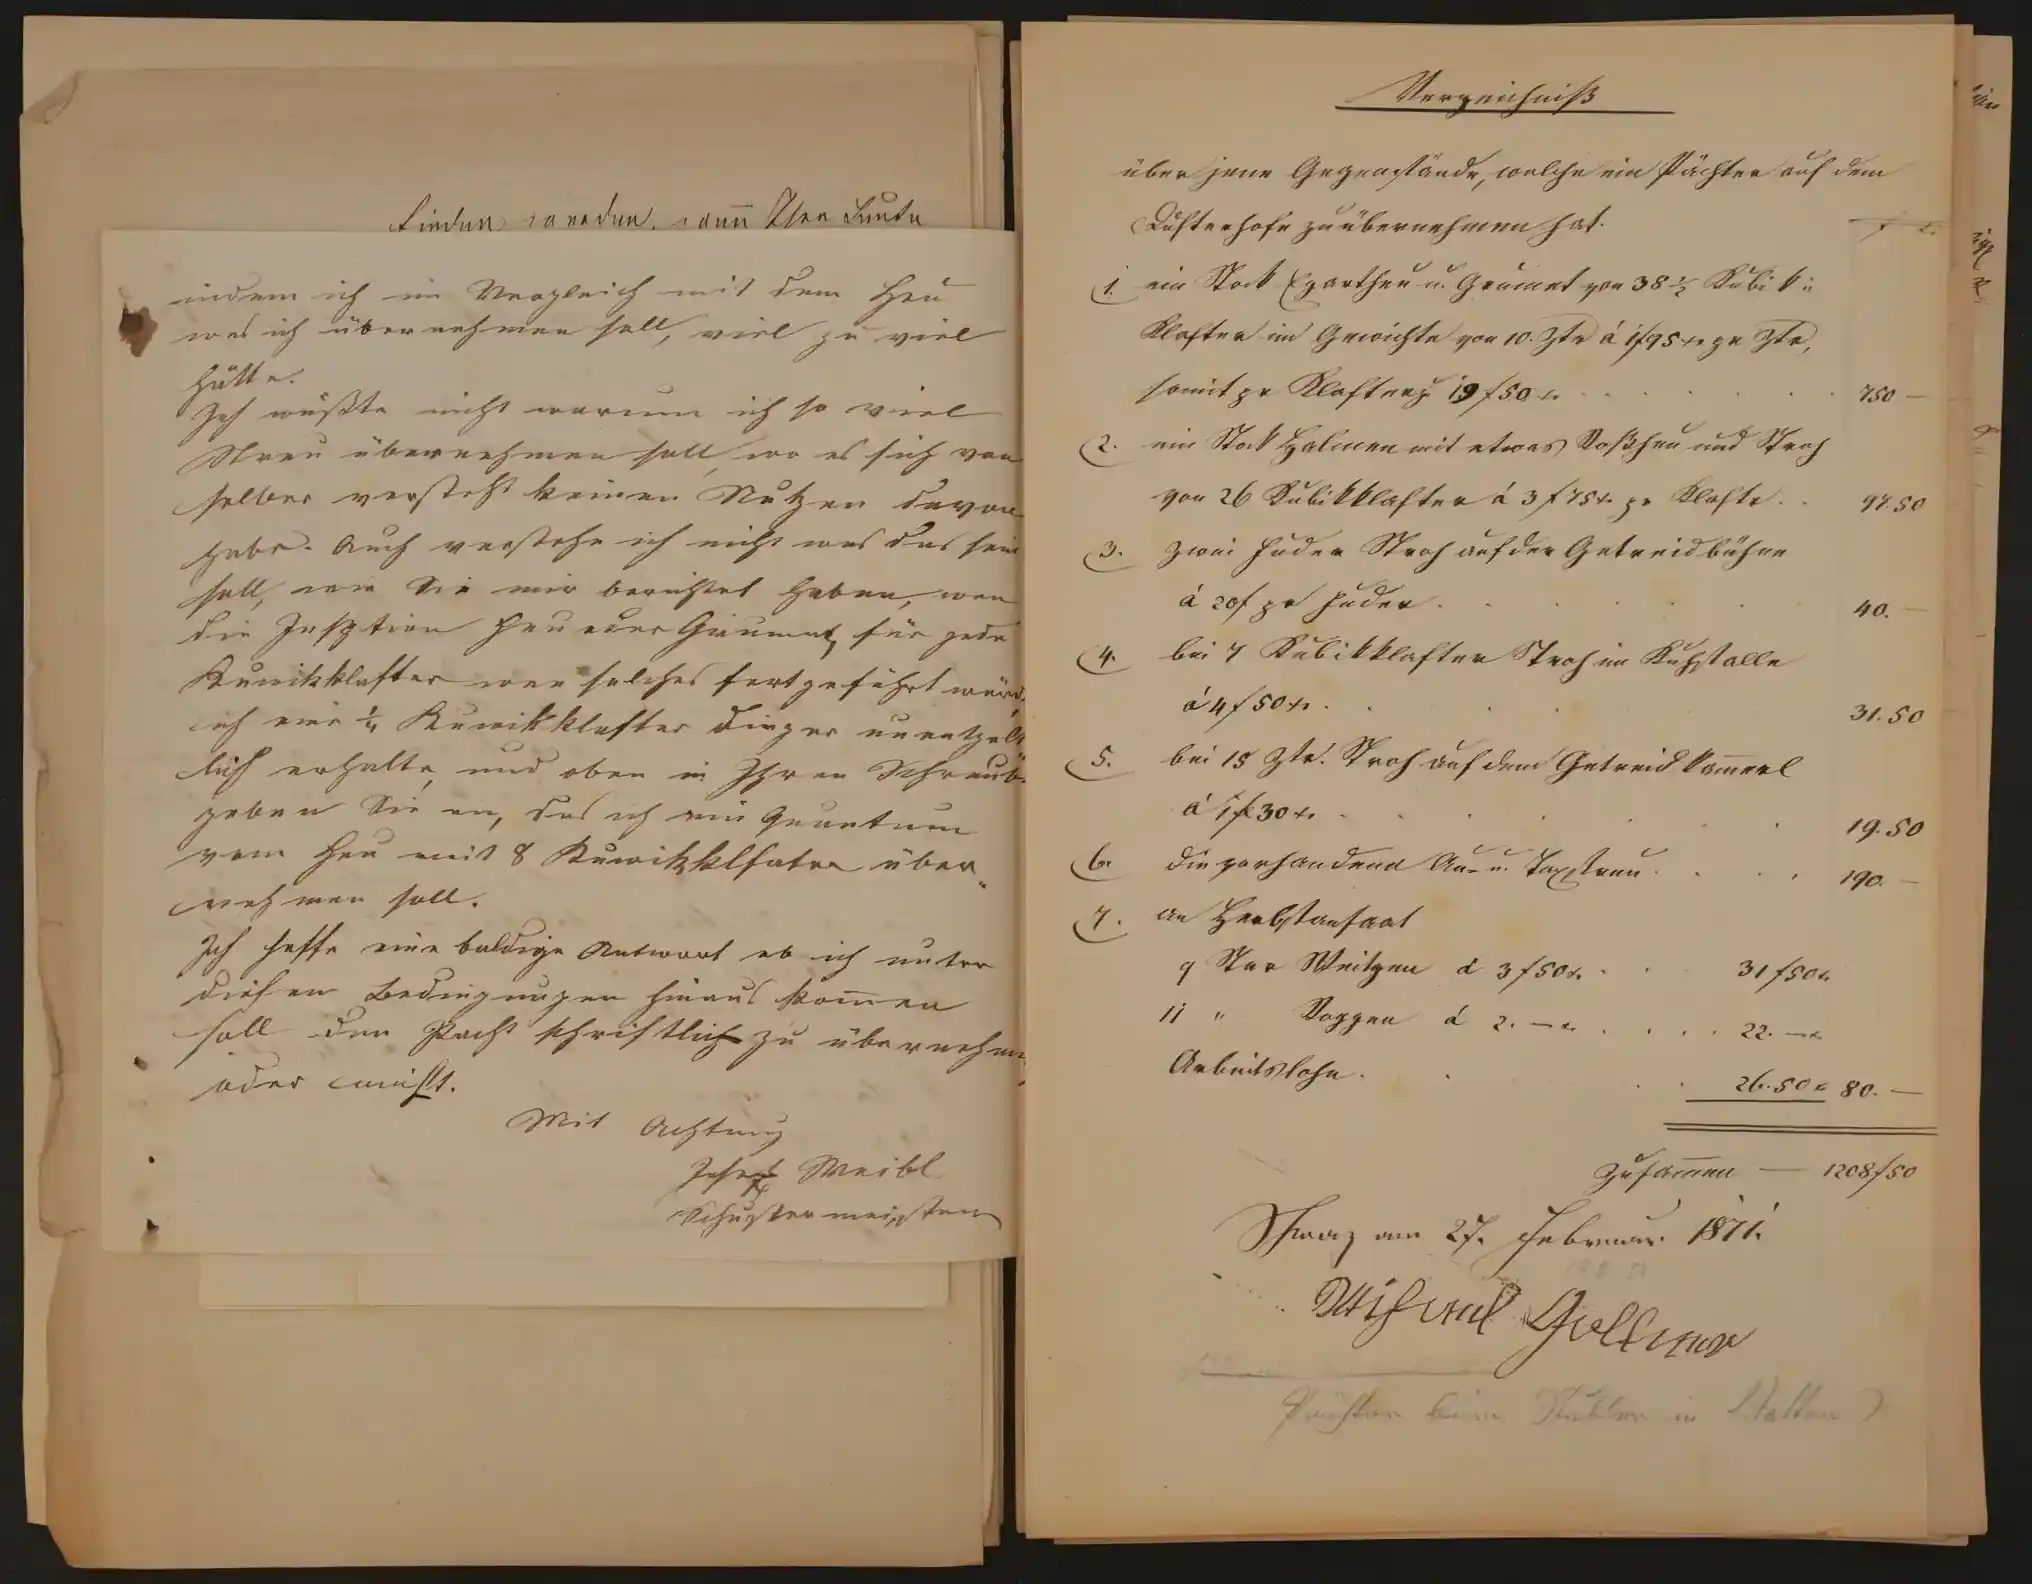 finden werden, wenn Ihre Leute
indem ich im Vergleich mit dem Heu
was ich übernehmen soll, viel zu viel
hätte.
Ich wüßte nicht warum ich so viel
Streu übernehmen soll, wo es sich von
selber versteht keinen Nutzen davon
habe. Auch verstehe ich nicht was das sein
soll, wie Sie mir berichtet haben, wen
die Heu oder Grumat, für jede
Kuwikklafter wen solches fortgeführt würd,
ich eine ¼ Kuwikklafter Dinger unentgelt
lich erhalte, und oben in Ihren Schreib.
geben Sie an, das ich ein Quantum
vom Heu mit 8 Kuwikklfater über
nehmen soll.
Ich hoffe eine baldige Antwort ob ich unter
diesen Bedingungen hinaus kom̄en
soll den Pacht schriftlich zu übernehm
oder nicht.
Mit Achtung
Josef Weibl
Schustermeister
Verzeichniß
über jene Gegenstände, welche ein Pächter auf dem
zu übernehmen hat.
f x.
1. ein Stock Egartheu u. Grumat von 38 ½ Kubik=
Klafter im Gewichte von 10. Ztr á 1f 95 x. pr Ztr,
somit pr Klafter 19 f 50 x. 750 —
2. ein Stock Halmen mit etwas Roßheu und Stroh
von 26 Kubikklafter á 3 f 75 x. pr Klaftr. 97.50
3. zwei Fuder Stroh auf der Getreidbühne
á 20f pr Fuder. 40. —
4. bei 7 Kubikklafter Stroh im Kuhstalle
á 4 f 50 x. 31.50
5. bei 15 Ztr. Stroh auf dem Getreidkam̄erl
á 1 f 30 x. 19.50
6. die vorhandene Au- u. Taxstreu. 190. —
7. an Herbstansaat
9 Star Weitzen á 3 f 50 x. 31 f 50 x.
11 " Roggen á 2. — x. 22. — x.
Arbeitslohn. 26.50 x 80. —
Zusam̄en — 1208 f 50
Schwaz am 27. Februar. 1871.
Michael
Pächter beim in